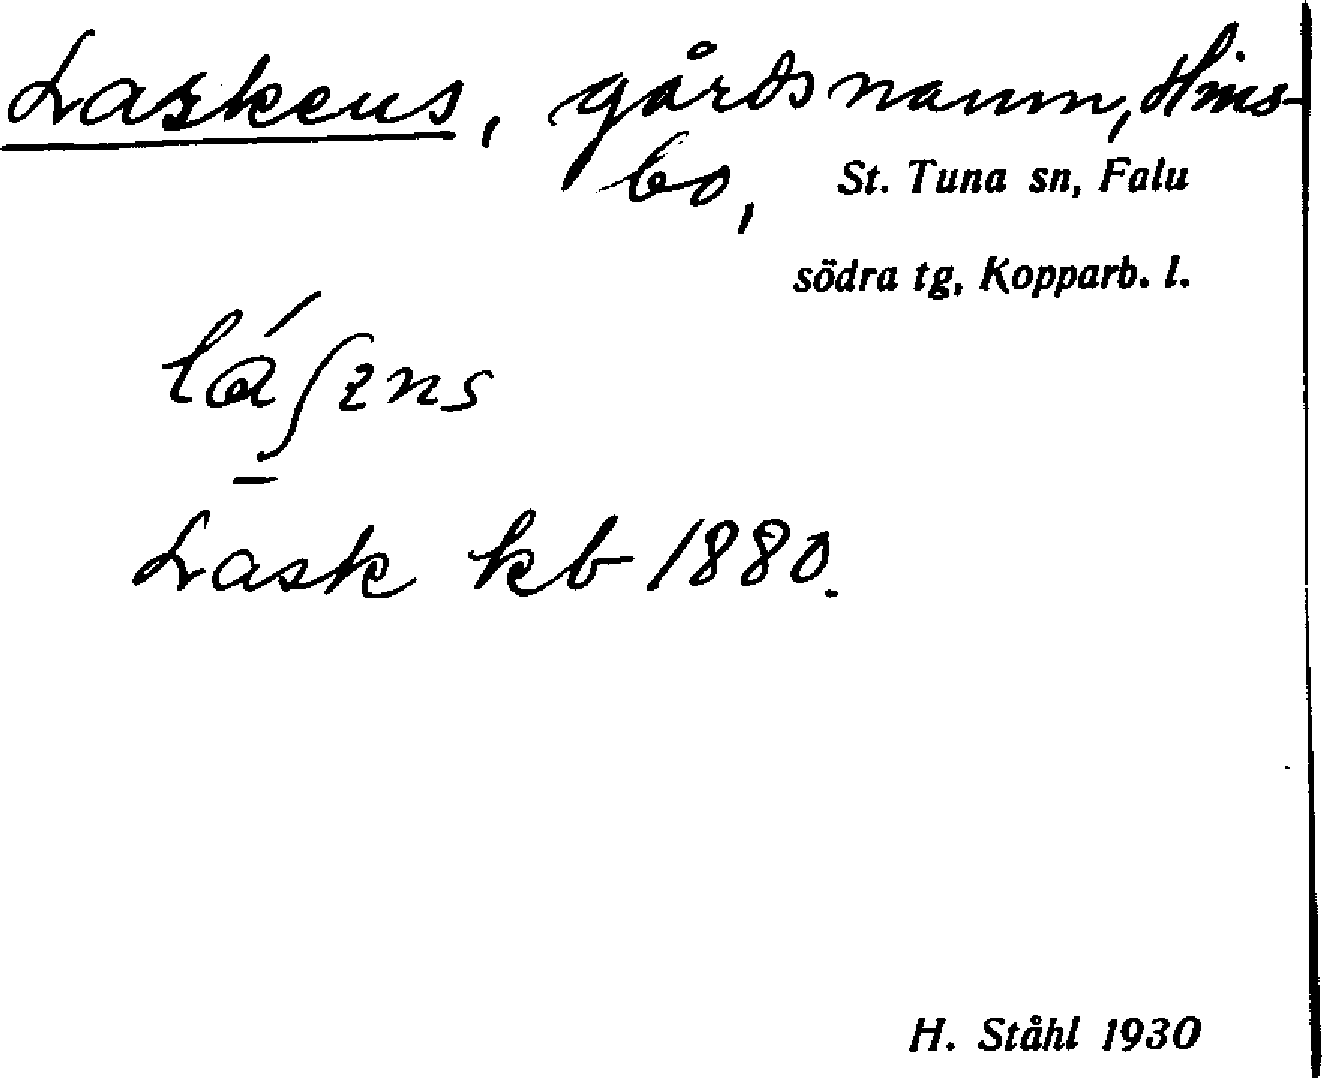 Laskens, gårdsnamn, Hins-
bo, St. Tuna sn, Falu
södra tg, Kopparb. l.
Lask kb 1880.
H. Ståhl 1930